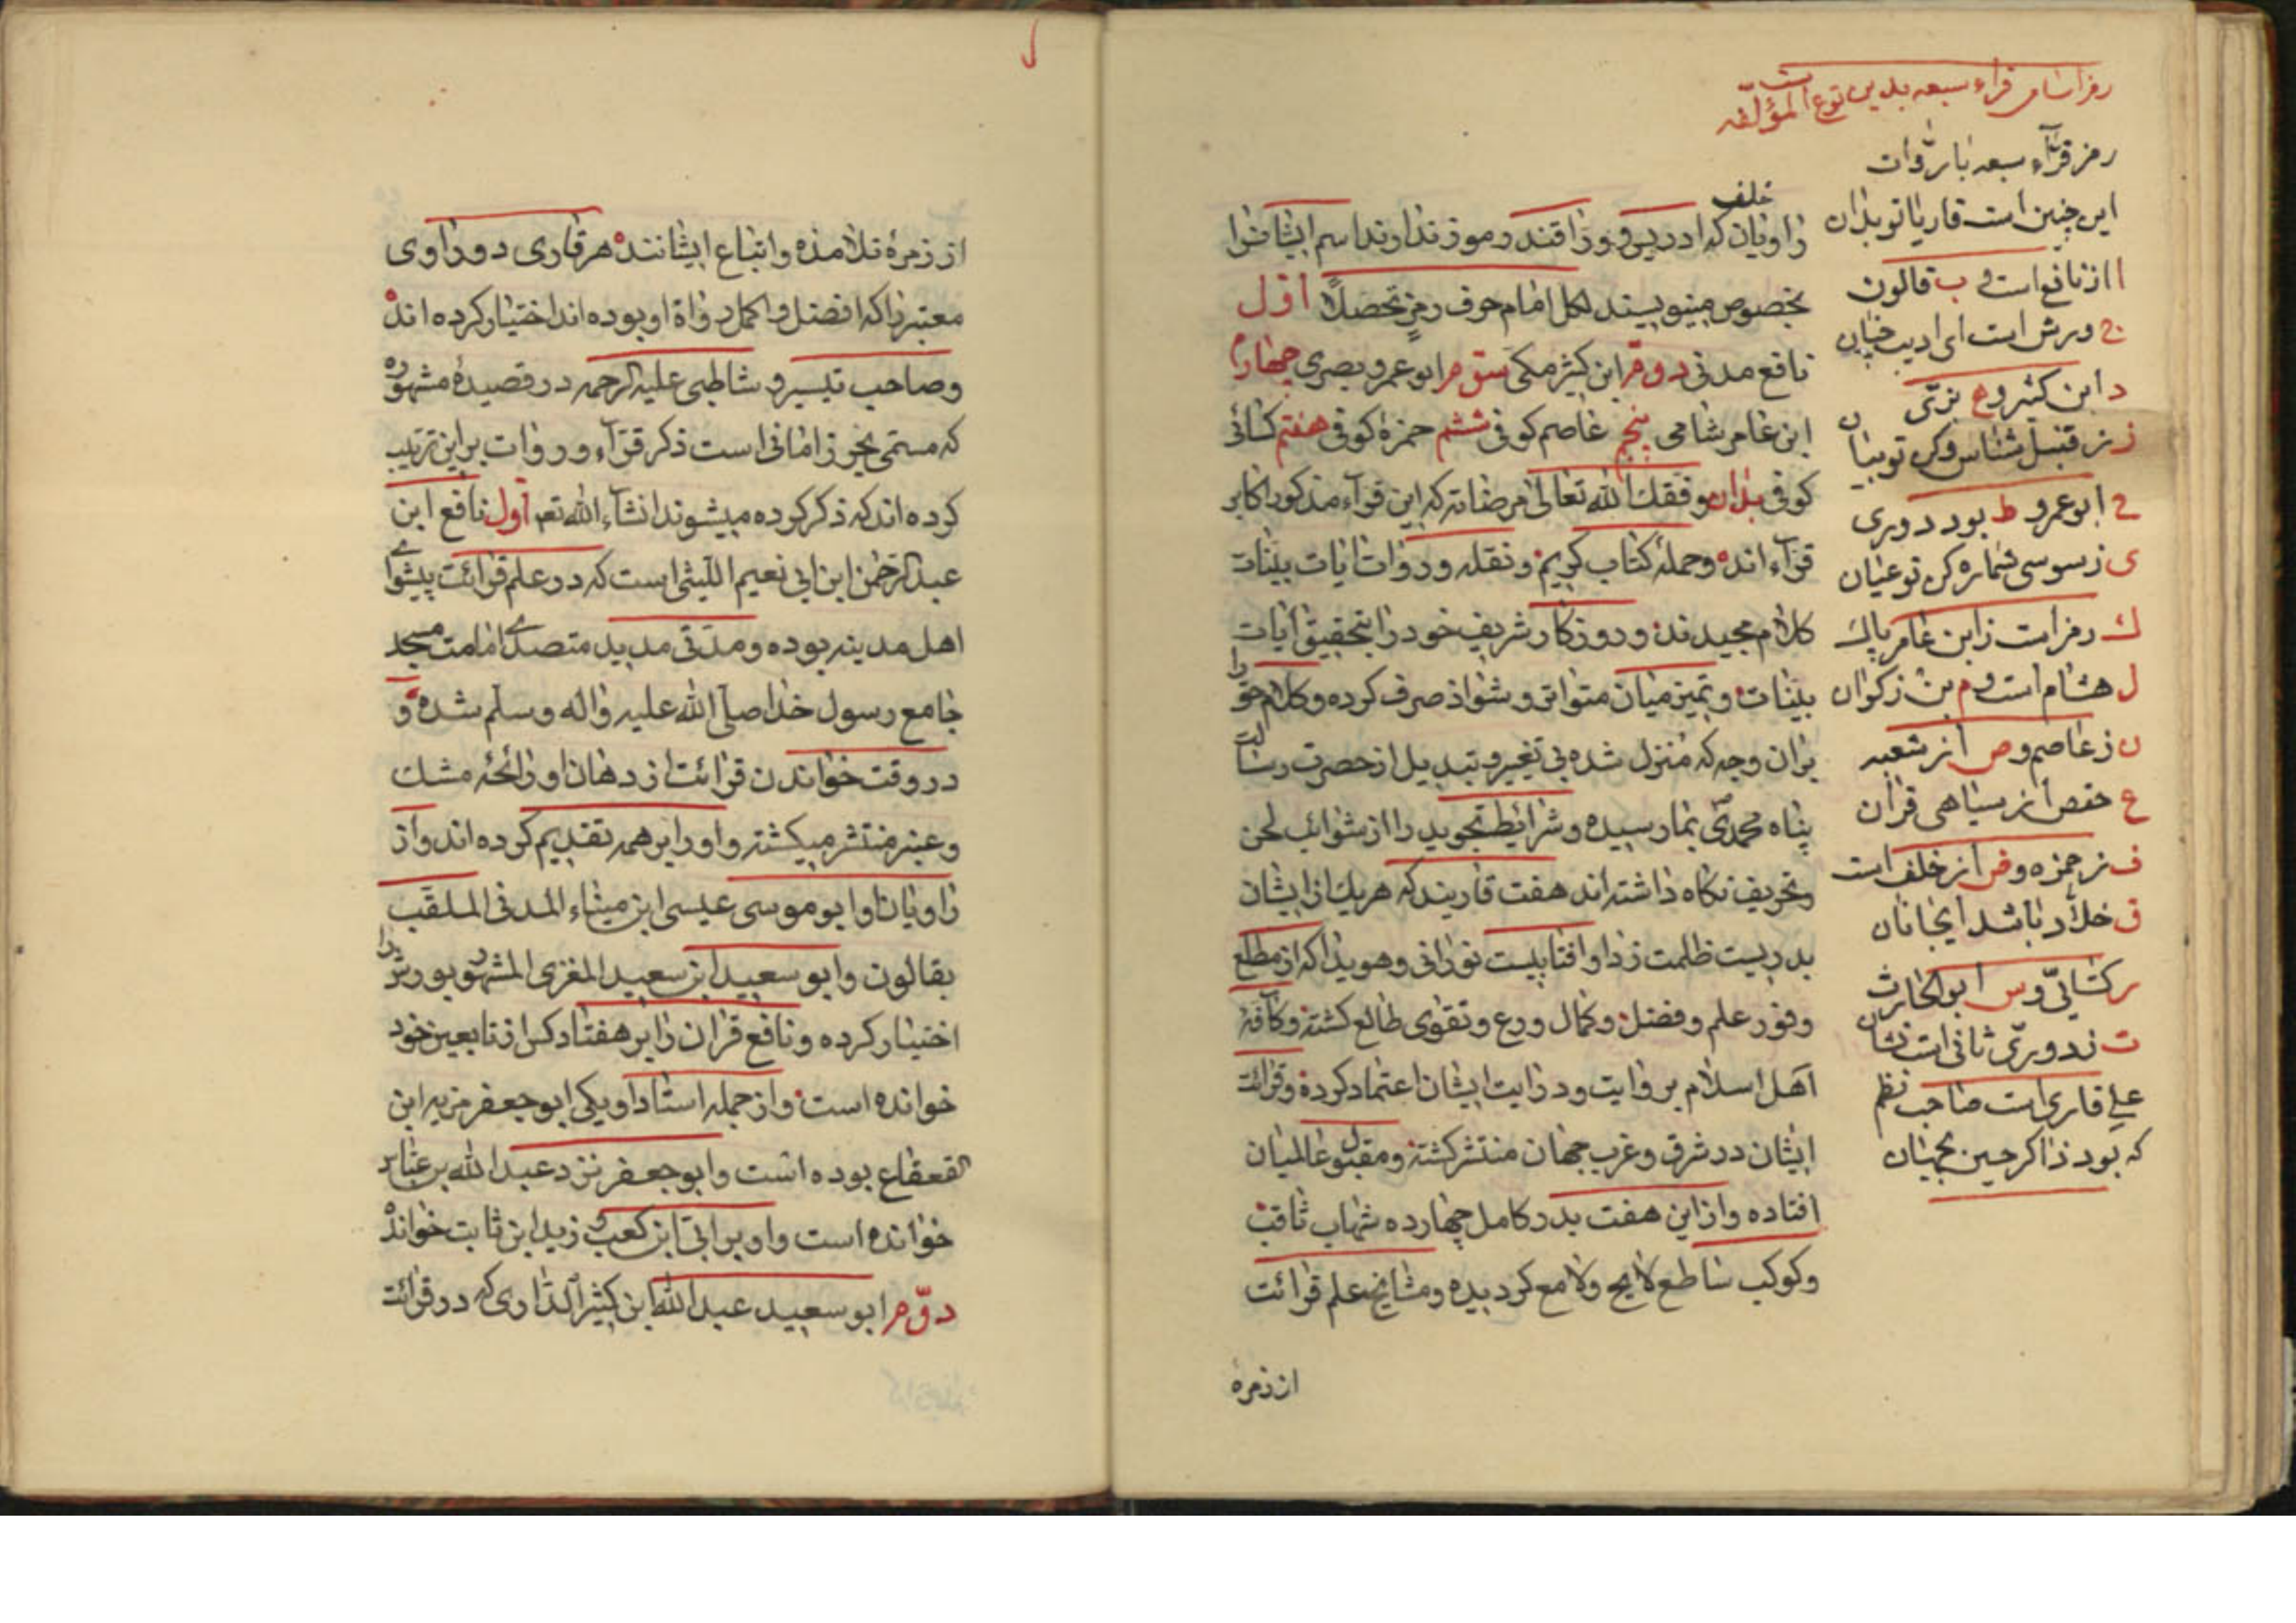 رمز اسامی قراء سبعه بدین نوع است
لمؤلفه
رمز قرّآء سبعه با رُوات
این چنین است قاریا تو بدان
ا از نافع است و ب قالون
ج ورش است ای ادیب
د ابن کثیر و ه بزّی
ز ز قنبل شناس و کن تو بیان
ح ابو عمرو ط بود دوری
ی ز سوسی شماره کن تو عیان
ك رمز است ز ابن عامر پاك
ل هشام است و م بن زکوان
ن ز عاصم و ص از شعبه
ع حفص از سیاهی قران
ف ز حمزه و ض از خلف است
ق خلّاد باشد ایجانان
ر کسائیّ و س ابو الحارث
ت ز دوریّ ثانی است نشان
علی قاری است صاحب نظم
که بود ذاکر حسین بجهان
خلف
راویان که ادریس و وراقند و رموز ندارند اسم ایشانرا
بخصوص مینویسند لکل امام حرف رمز تحصلاً اوّل
نافع مدنی دوّم ابن کثیر مکی سوّم ابو عمرو بصری چهارم
ابن عامر شامی پنجم عاصم کوفی ششم حمزه کوفی هفتم کسائی
کوفی بدان وفقك الله تعالی مرضاته که این قرآء مذکور اکابر
قرآء اند و حمله کتاب کریم و نقله و روات ایات بینات
کلام مجیدند و روزکار شریف خود را بتحقیق ایات
بینات و تمیز میان متواتر و شواذ صرف کرده و کلام حق را
بران وجه که منزل شده بی تغییر و تبدیل از حضرت رسالت
پناه محمدی بما رسیده و شرائط تجوید را از شوائب لحن
و تحریف نکاه داشته اند هفت قاریند که هریك از ایشان
بدریست ظلمت زدا و افتابیست نورانی و هویدا که از مطلع
وفور علم و فضل و کمال ورع و تقوی طالع کشته و کآفه
اهل اسلام بر روایت و درایت ایشان اعتماد کرده و قرائت
ایشان در شرق و غرب جهان منتشر کشته و مقبول عالمیان
افتاده و از این هفت بدر کامل چهارده شهاب ثاقب
و کوکب ساطع لایح و لامع کردیده و مشایخ علم قرائت
از زمرهٔ
از زمرهٔ تلامذه و اتباع ایشانند هر قاری دو راوی
معتبر را که افضل و اکمل رواة او بوده اند اختیار کرده اند
و صاحب تیسیر و شاطبی علیه الرحمه در قصیدهٔ مشهوره
که مسمی بحرز امانی است ذکر قرّآء و روات بر این ترتیب
کرده اند که ذکر کرده میشوند انشآء الله تعم اول نافع ابن
عبد الرحمن ابن ابی نعیم اللیثی است که در علم قرائت پیشوای
اهل مدینه بوده و مدّتی مدید متصدی امامت مسجد
جامع رسول خدا صلی الله علیه واله وسلم شده و
در وقت خواندن قرائت از دهان او رائحهٔ مشك
و عنبر منتشر میکشته و او را بر همه تقدیم کرده اند و از
راویان او ابو موسی عیسی ابن میناء المدنی الملقب
بقالون و ابو سعید ابن سعید المغزی المشهور بورش را
اختیار کرده و نافع قران را بر هفتاد کس از تابعین خود
خوانده است و از جمله استاد او یکی ابو جعفر مزید ابن
القعقاع بوده است و ابو جعفر نزد عبد الله بن عباس
خوانده است و او بر ابی ابن کعب و زید ابن ثابت خوانده
دوّم ابو سعید عبد الله ابن کثیر الداری که در قرائت